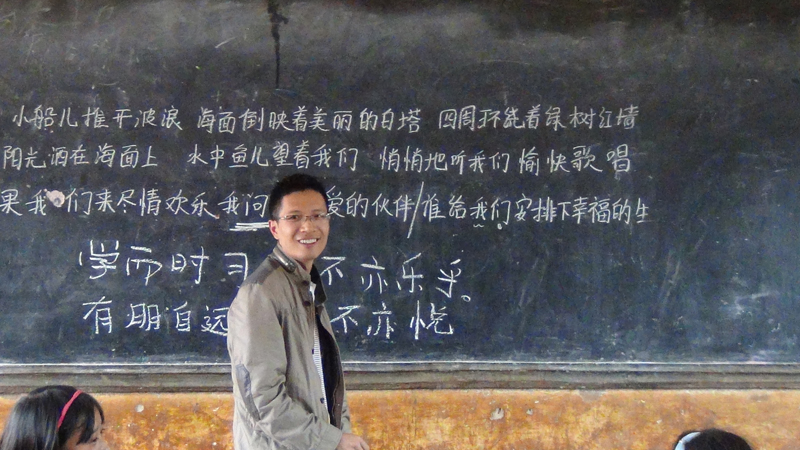 小船儿推开波浪 海面倒映着美丽的白塔 四周环绕着绿树红墙
阳光洒在海面上 水中鱼儿望着我们 悄悄地听我们愉快歌唱
果我们来尽情欢乐 我问 爱的伙伴 谁给我们安排下幸福的生
学而时习 不亦乐乎。
有朋自远 不亦悦